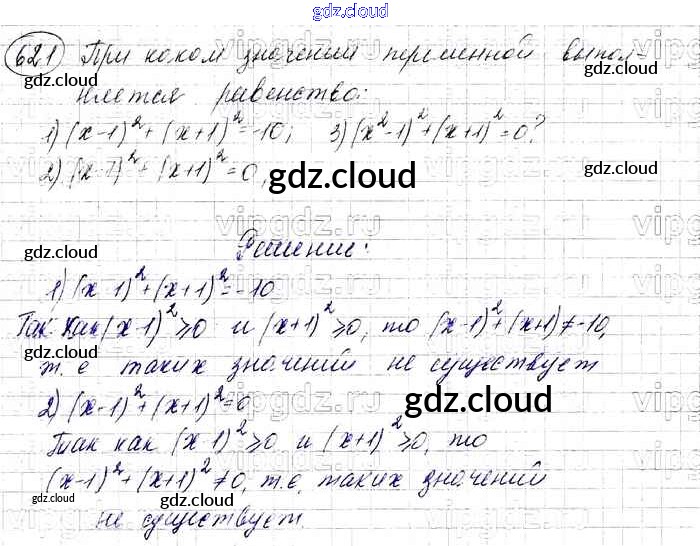 gdz.cloud
621 При каком значении переменной выпол-
няется равенство:
1) (x-1)²+(x+1)²=-10; 3) (x²-1)²+(x+1)²=0?
2) (x-1)²+(x+1)²=0,
gdz.cloud
gdz.cloud
gdz.cloud
gdz.cloud
vipgdz.ru
Решение:
gdz.cloud
gdz.cloud
1) (x-1)²+(x+1)²=-10
Так как (x-1)²≥0 и (x+1)²≥0, то (x-1)²+(x+1)≠-10,
gdz.cloud
gdz.cloud
т. е таких значений не существует
2) (x-1)²+(x+1)²=0
gdz.cloud
Так как (x-1)²≥0 и (x+1)²≥0, то
(x-1)²+(x+1)²≠0, т.е, таких значений
gdz.cloud
gdz.cloud
не существует.